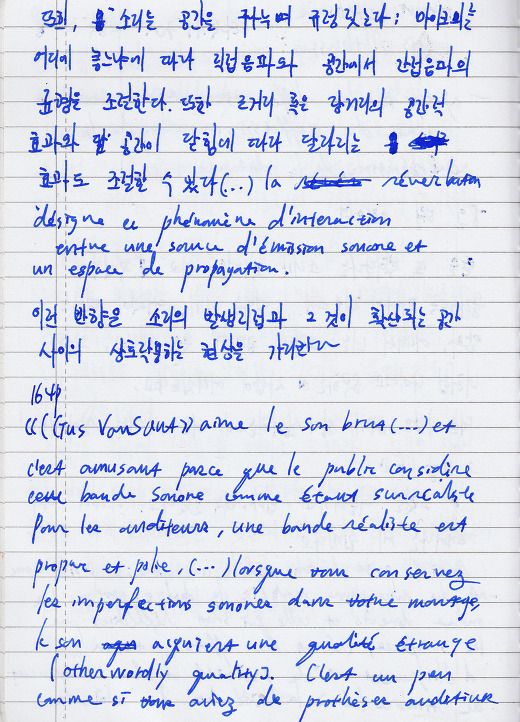 또한, 소리는 공간을 규정짓는다; 마이크의는
어디에 놓느냐에 따라 직접음파와 공간에서 간접음파의
균형을 조절한다. 또한 근거리 혹은 장거리의 공간적
효과와 공간이 닫힘에 따라 달라지는
효과도 조절할 수 있다(...) la
désigne ce phénomène d'interaction
entre une source d'émission sonore et
un espace de propagation.
이런 반향은 소리의 그것이 확산되는 공간
사이의 현상을
164p
«((Gus VanSant» aime le son brut (...) et
c'est amusant parce que le public considère
cette bande sonore comme étant surréaliste
Pour les auditeurs, une bande réaliste est
propre et polie, (...) lorsque vous conservez
les imperfections sonores dans votre montage,
le son acquiert une qualité étrange
(otherwordly quality). C'est un peu
comme si vous aviez de prothèses auditive